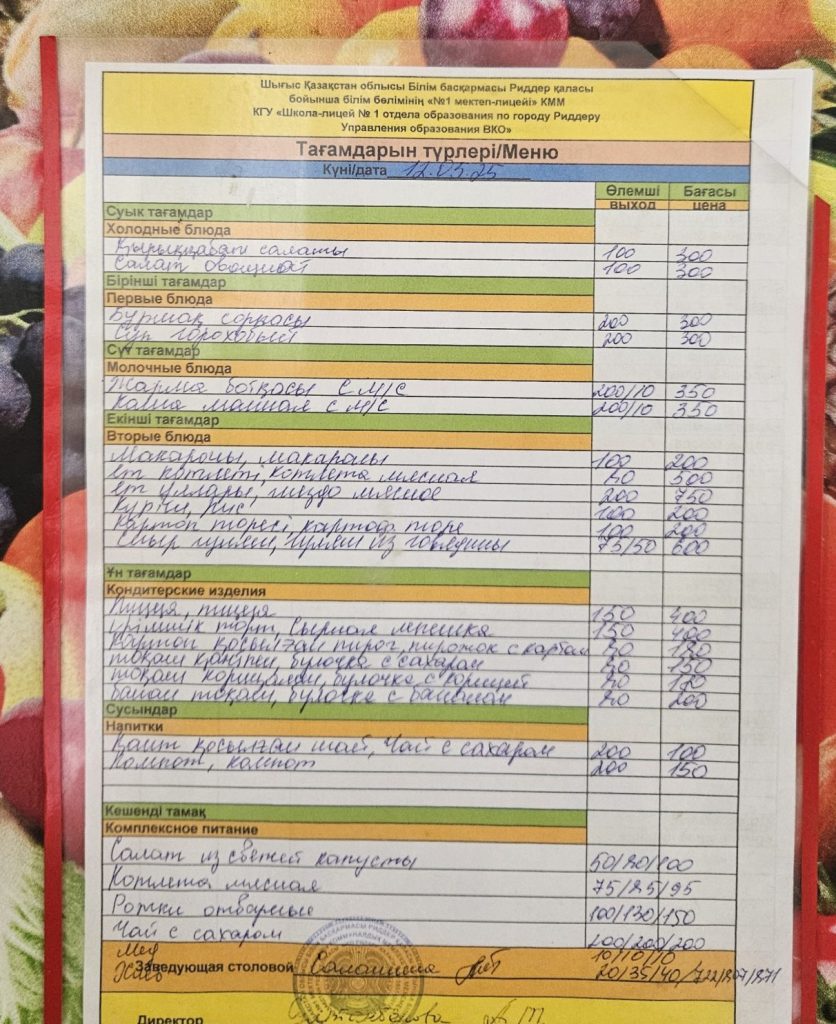 Шығыс Қазақстан облысы Білім басқармасы Риддер қаласы
бойынша білім бөлімінің «№1 мектеп-лицейі» КММ
КГУ «Школа-лицей № 1 отдела образования по городу Риддеру
Управления образования ВКО»
Тағамдарын түрлері/Меню
Күні/дата 12.03.25
Өлемші Бағасы
выход цена
Суык тағамдар
Холодные блюда
Қырыққабат салаты 100 300
Салат овощной 100 300
Бірінші тағамдар
Первые блюда
Бұршақ сорпасы 200 300
Суп гороховый 200 300
Сүт тағамдар
Молочные блюда
Жарма ботқасы с м/с 200/10 350
Каша манная с м/с 200/10 350
Екінші тағамдар
Вторые блюда
Макароны, макароны 100 200
ет котлеті, котлета мясная 80 500
ет ұялары, гнездо мясное 200 750
Күріш, рис 100 200
Картоп пюресі картоф. пюре 100 200
Сиыр гуляш, гуляш из говядины 75/50 600
Ұн тағамдар
Кондитерские изделия
Пицца, пицца 150 400
Ірімшік торт, сырная лепешка 150 400
Картоп қосылған пирог, пирожок с картоф 80 180
тоқаш қантпен, булочка с сахаром 80
тоқаш корицамен, булочка с корицей 80
банан тоқаш, булочка с бананом 80 200
Сусындар
Напитки
Қант қосылған шай, Чай с сахаром 200 100
Компот, компот 200 150
Кешенді тамақ
Комплексное питание
Салат из свежей капусты 50/80/100
Котлета мясная 75/85/95
Рожки отварные 100/130/150
Чай с сахаром 200/200/200
Мед 10/10/10
Хлеб 20/35/40/722/807/871
Заведующая столовой
Директор